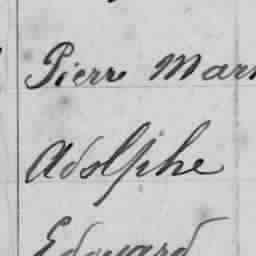 Pierre Mar
Adolphe
Edouard